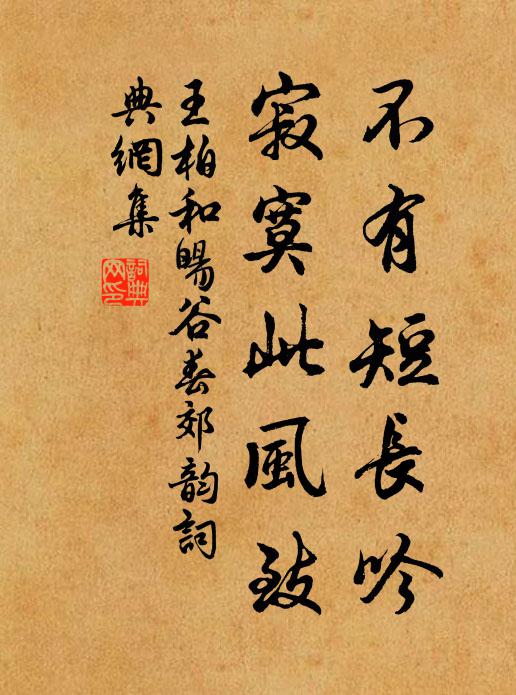 不有短長吟
寂寞此風致
王柏和暘谷春郊韵詞
典網集
詞典
网印